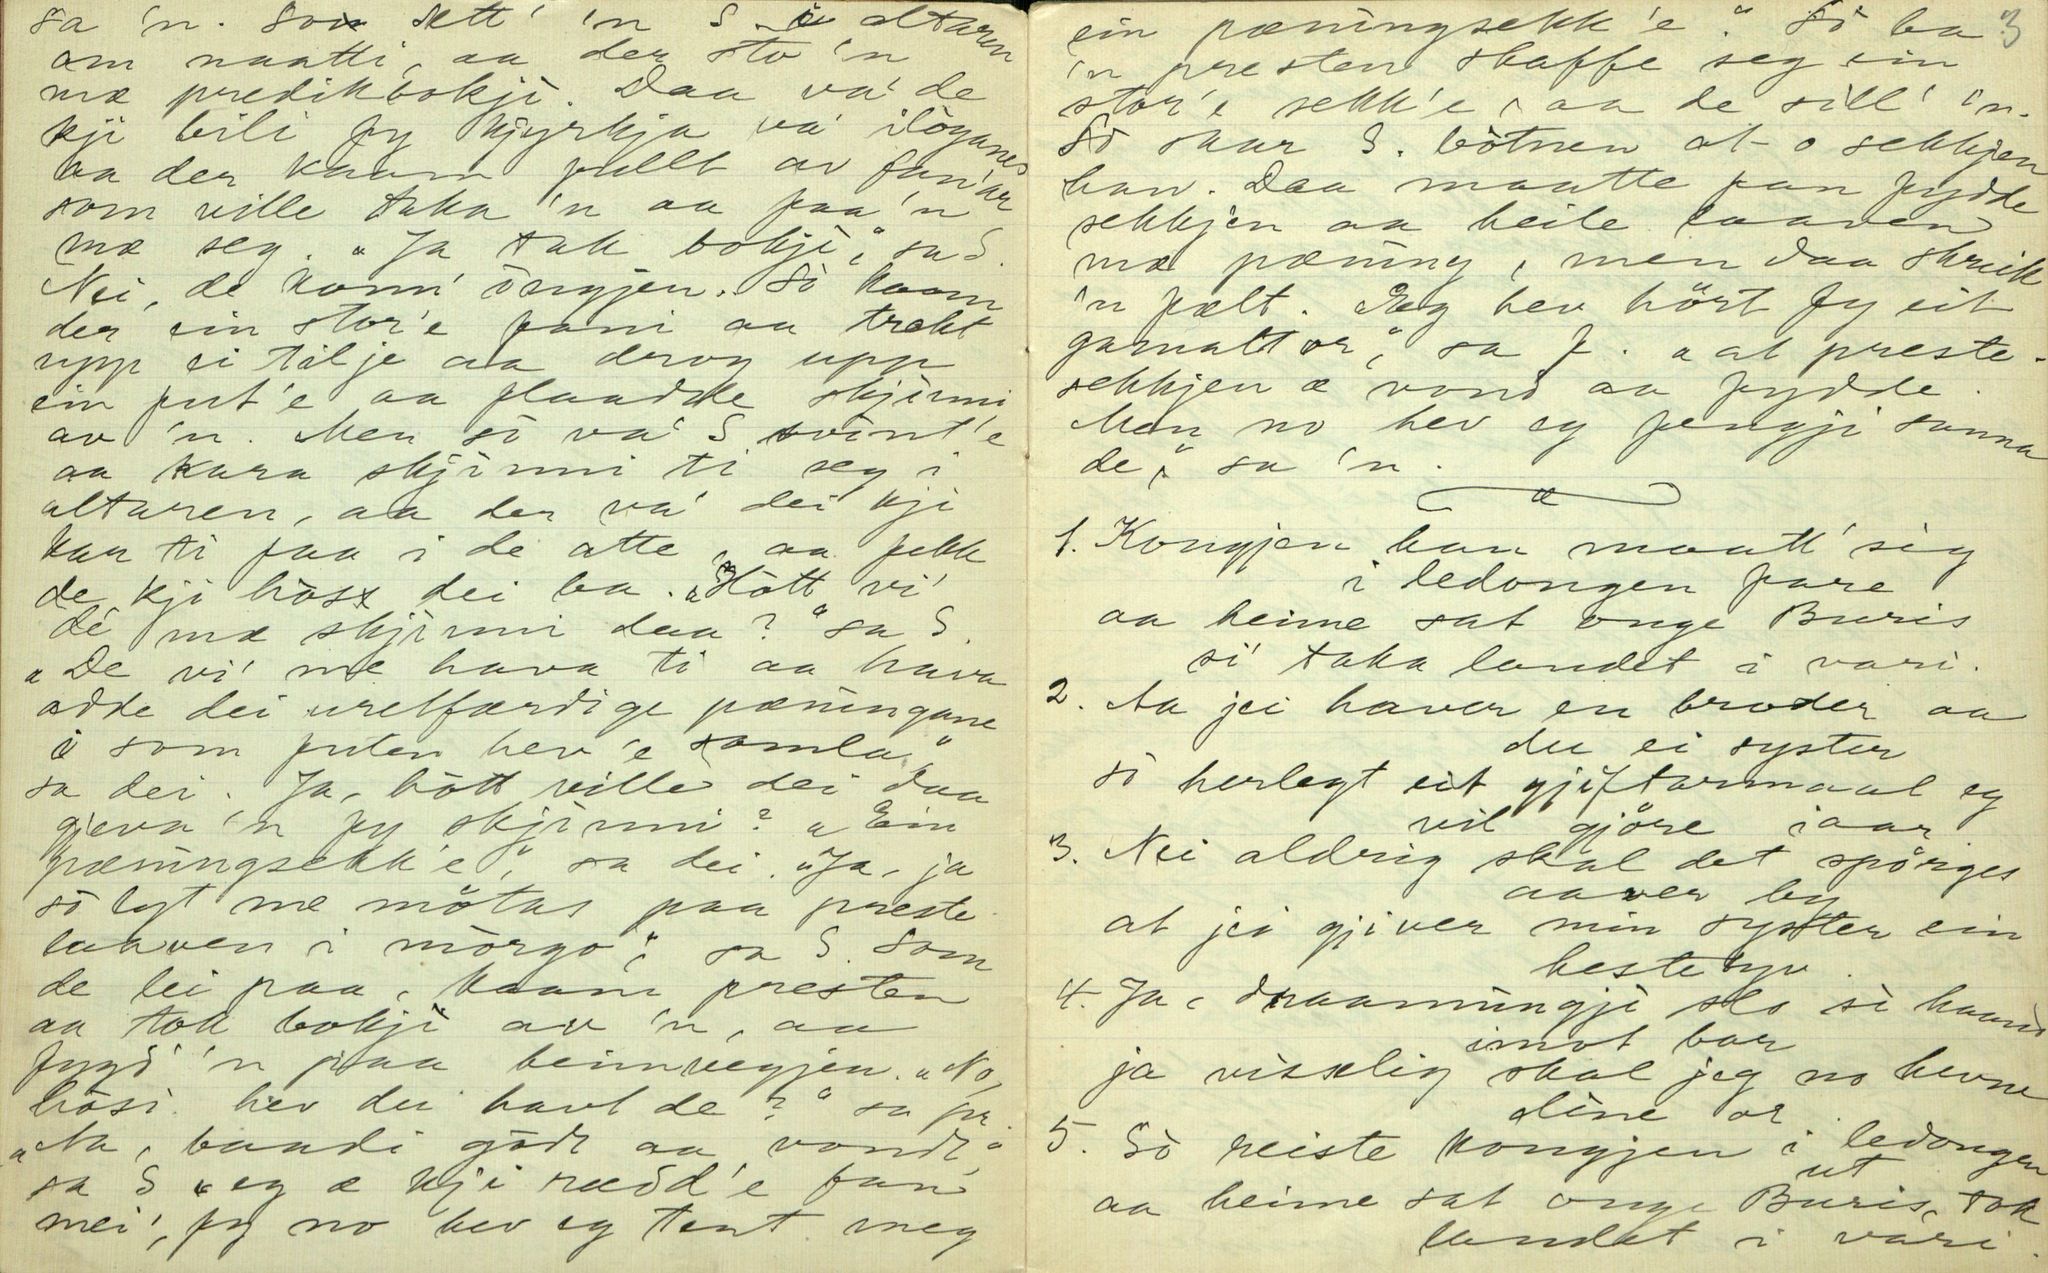 sa 'n. So sett' 'n S i altaren
om naatti, aa der sto 'n
mæ predikbokji. Daa va' de
kji bili fy kjyrkja va' ilöganes
aa der kaam fullt av fan'ar
som ville taka 'n aa faa 'n
mæ seg. "Ja tak bokji," sa S.
Nei, de konn' ingjen. So kaam
der ein stor'e fani aa trekt
upp ei tilje aa drog upp
ein fut'e aa flaadde skjinni
av 'n. Men so va' S svint'e
aa kara skjinni ti seg i
altaren, aa der va' dei kji
kar ti faa i de atte, aa fekk
de kji hoss dei ba. "Hott vi'
de mæ skjinni daa?" sa S.
"De vi' me hava ti aa hava
adde dei uretfærdige pæningane
i som futen hev'e samla,"
sa dei. Ja, hott ville dei daa
gjeva 'n fy skjinni? "Ein
pæningsekk'e," sa dei. "Ja, ja
so lyt me mötas paa preste-
laaven i morgo," sa S. Som
de lei paa, kaam presten
aa tok bokji av 'n, aa
fygd' 'n paa heimvegjen. "No,
hossi hev dei havt de?" sa pr.
"Aa, baadi godt aa vondt,"
sa S "eg æ kji rædd'e fan
mei', fy no hev eg tent meg
ein pæningsekk'e." So ba 3
'n presten skaffe seg ein
stor'e sekk'e, aa de sill' 'n.
So skar S. botnen at-o sekkjen
han. Daa maatte fan fydde
sekkjen aa heile laaven
mæ pæning, men daa skreik
'n fælt. "Eg hev hört fy eit
gamalt or," sa f. "at preste-
sekkjen æ vond aa fydde.
Men no hev eg fengji sanna
de," sa 'n.
1. Kongjen han maatt' sig
i ledongen fare
aa heime sat onge Buris
si' taka landet i vari.
2. Aa jei haver en broder aa
du ei syster
so herlegt eit gjiftarmaal eg
vil gjöre iaar
3. Nei aldrig skal det spörges
aaver by
at jei gjiver min syster ein
hestetyv.
4. Ja, draamningji slo si haand
imot bar
ja visselig skal jeg no hevne
dine or
5. So reiste kongjen i ledongen
ut
aa heime sat onge Buris, tok
landet i vari.